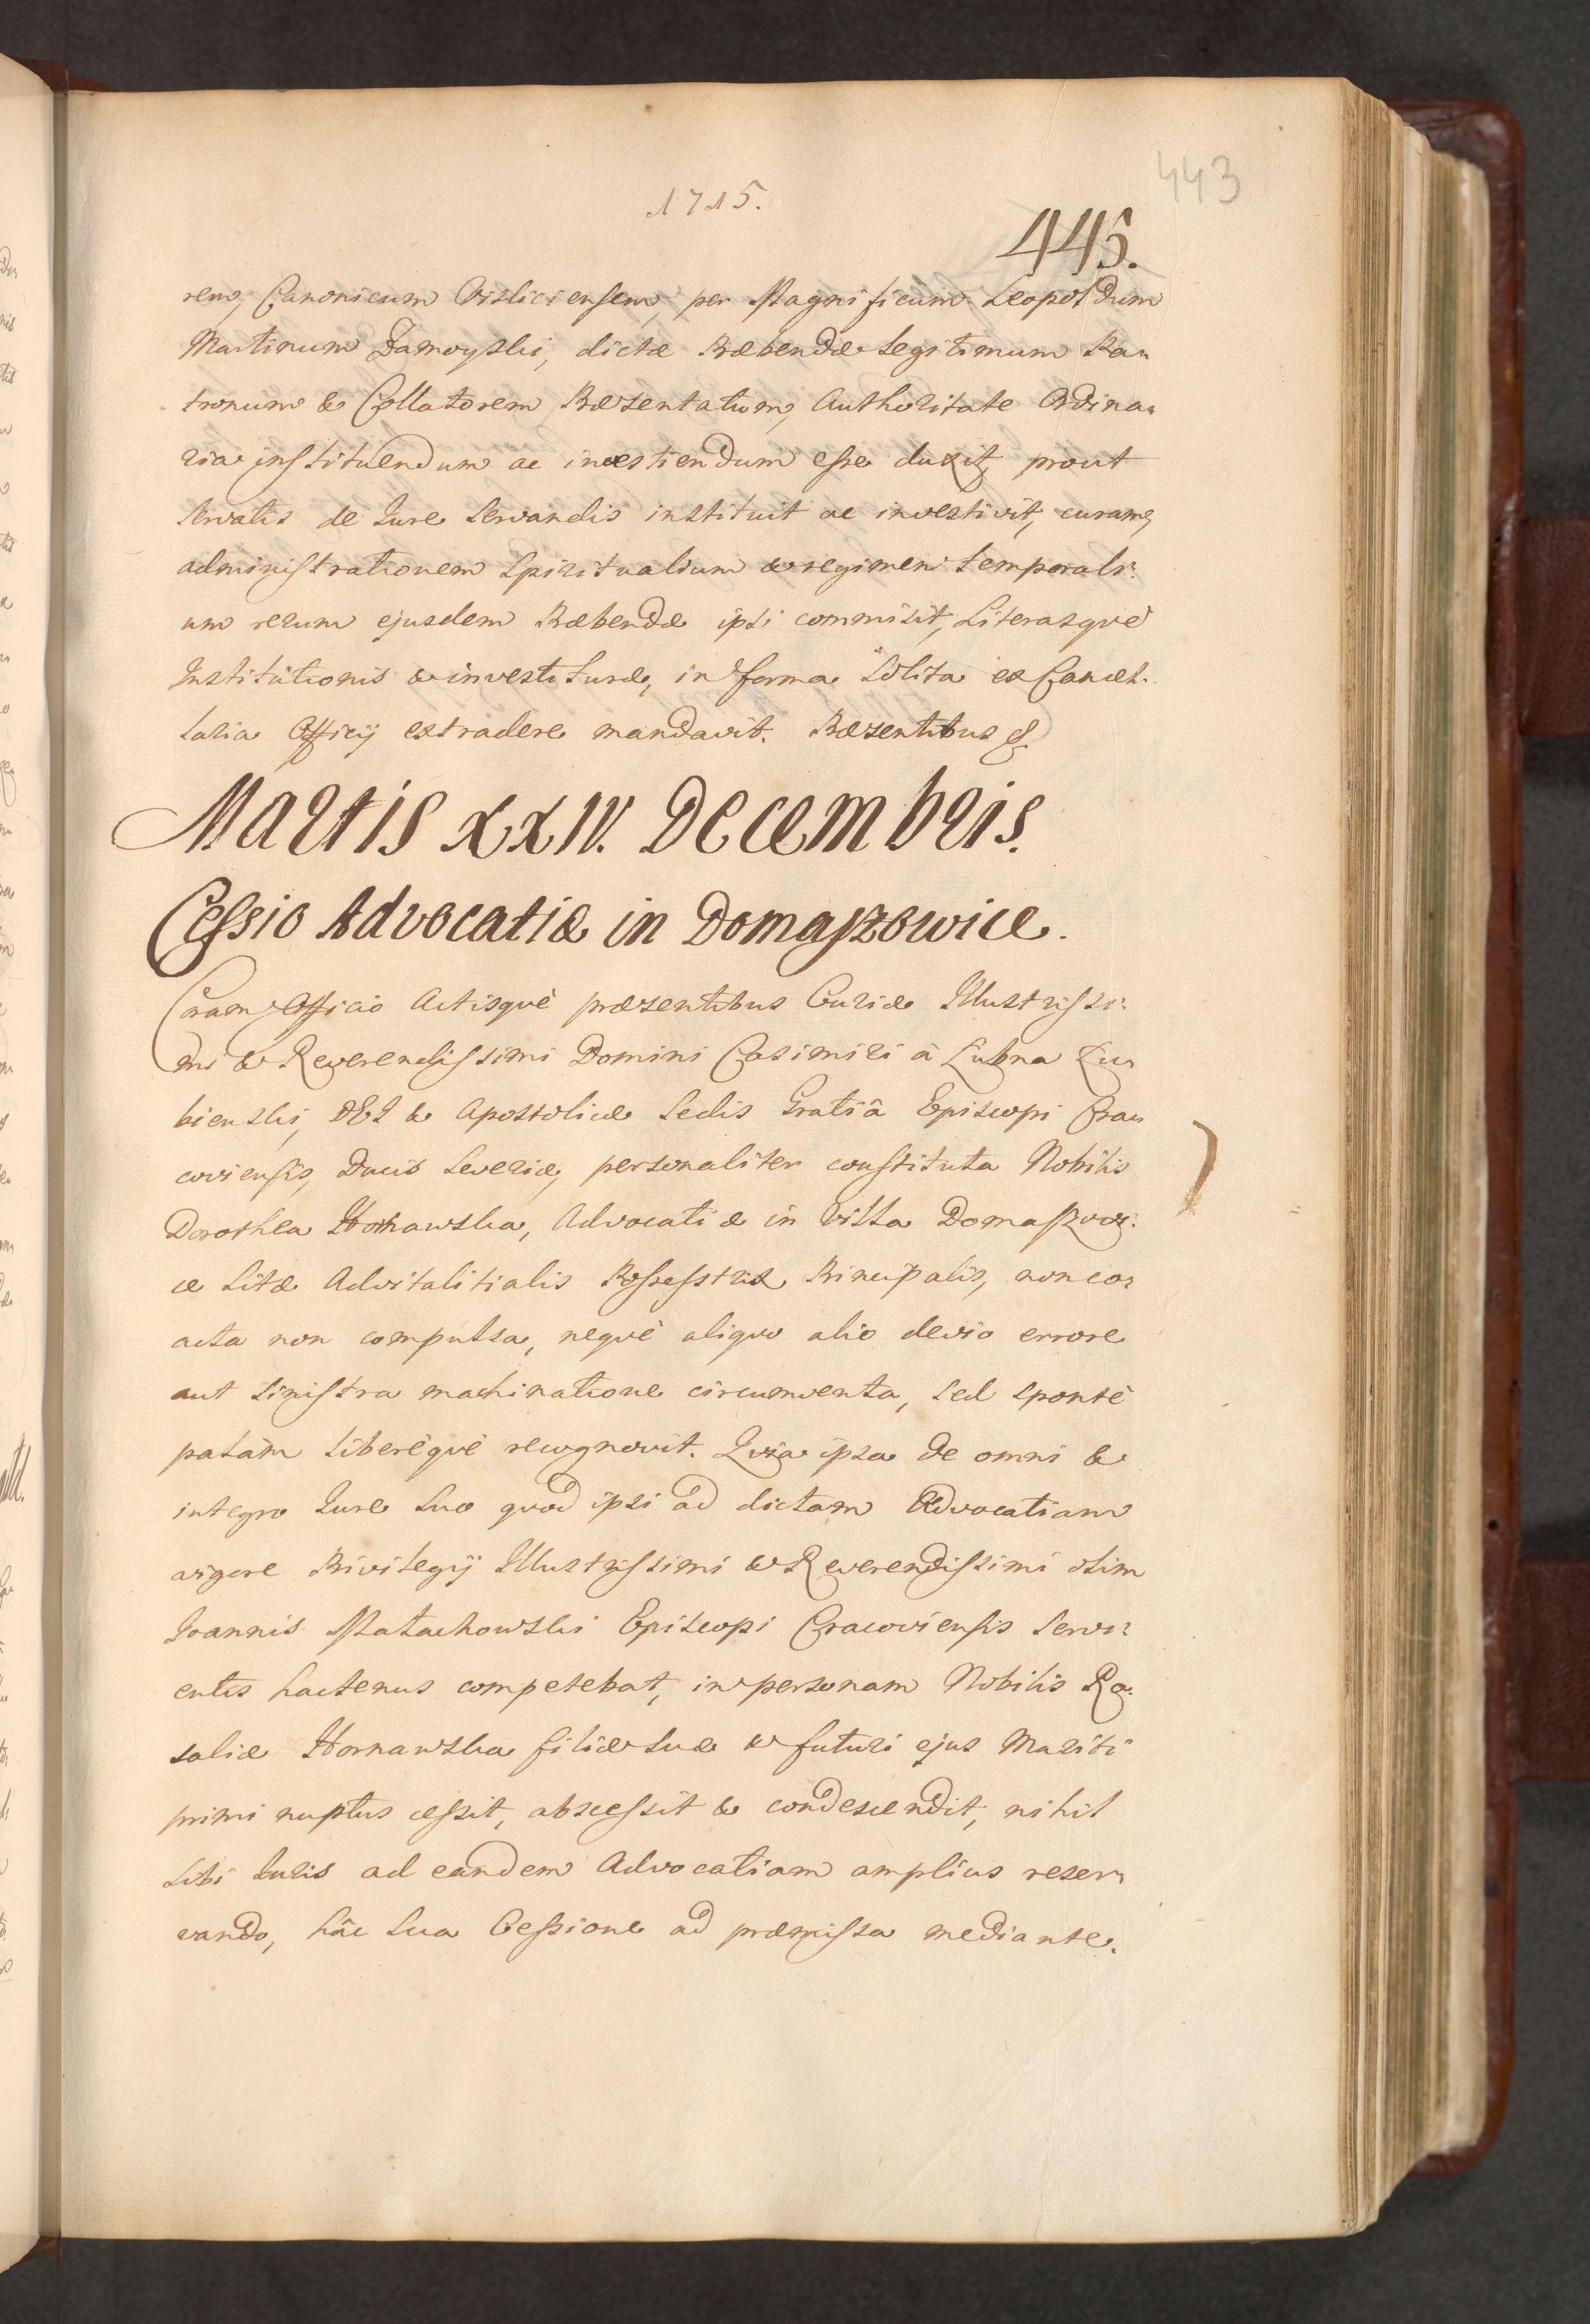 443
1715.
445.
rem, Canonicum Visliciensem, per Magnificum Leopoldum
Martinum Zamoyski, dictæ Præbendæ Legitimum Pa=
tronum & Collatorem Præsentatum, Authoritate Ordina=
ria instituendum ac investiendum esse duxit, prout
servatis de Iure servandis instituit ac investivit, curam,
administrationem Spiritualium & regimen temporali=
um rerum ejusdem Præbendæ ipsi commisit, Literasqvè
Institutionis & investituræ, in forma solita ex Cancel=
laria Officij extradere mandavit. Præsentibus &
Martis XXIV. Decembris.
Cessio Advocatiæ in Domaszowice.
Coram Officio Actisqvè præsentibus Curiæ Illustrissi=
mi & Reverendissimi Domini Casimiri à Lubna Łu=
bienski, DEI & Apostolicæ Sedis Gratiâ Episcopi Cra=
coviensis, Ducis Severiæ, personaliter constituta Nobilis
Dorothea Hornawska, Advocatiæ in Villa Domaszowi=
ce sitæ Advitalitialis Possessrix Principalis, non co=
acta non compulsa, neqvè aliquo alio devio errore
aut sinistra machinatione circumventa, sed spontè
palàm liberèqvè recognovit. Quia ipsa de omni &
integro Iure suo quod ipsi ad dictam Advocatiam
vigore Privilegij Illustrissimi & Reverendissimi olim
Ioannis Małachowski Episcopi Cracoviensis servi=
entis hactenus competebat, in personam Nobilis Ro=
saliæ Hornawska filiæ suæ & futuri ejus Mariti
primi nuptus cessit, abscessit & condescendit, nihil
sibi Iuris ad eandem Advocatiam amplius reser=
vando, hâc sua Cessione ad præmissa mediante.